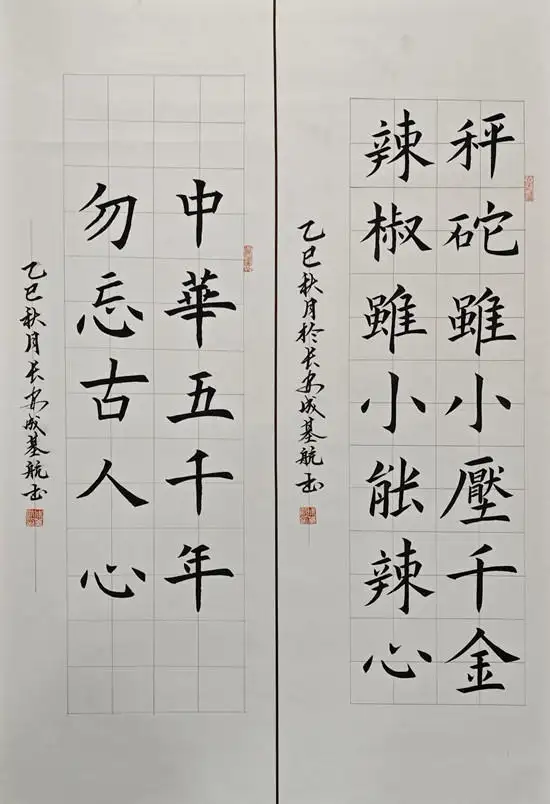 秤砣雖小壓千金
辣椒雖小能辣心
乙巳秋月於长安成基航书
中華五千年
勿忘古人心
乙巳秋月长安成基航书